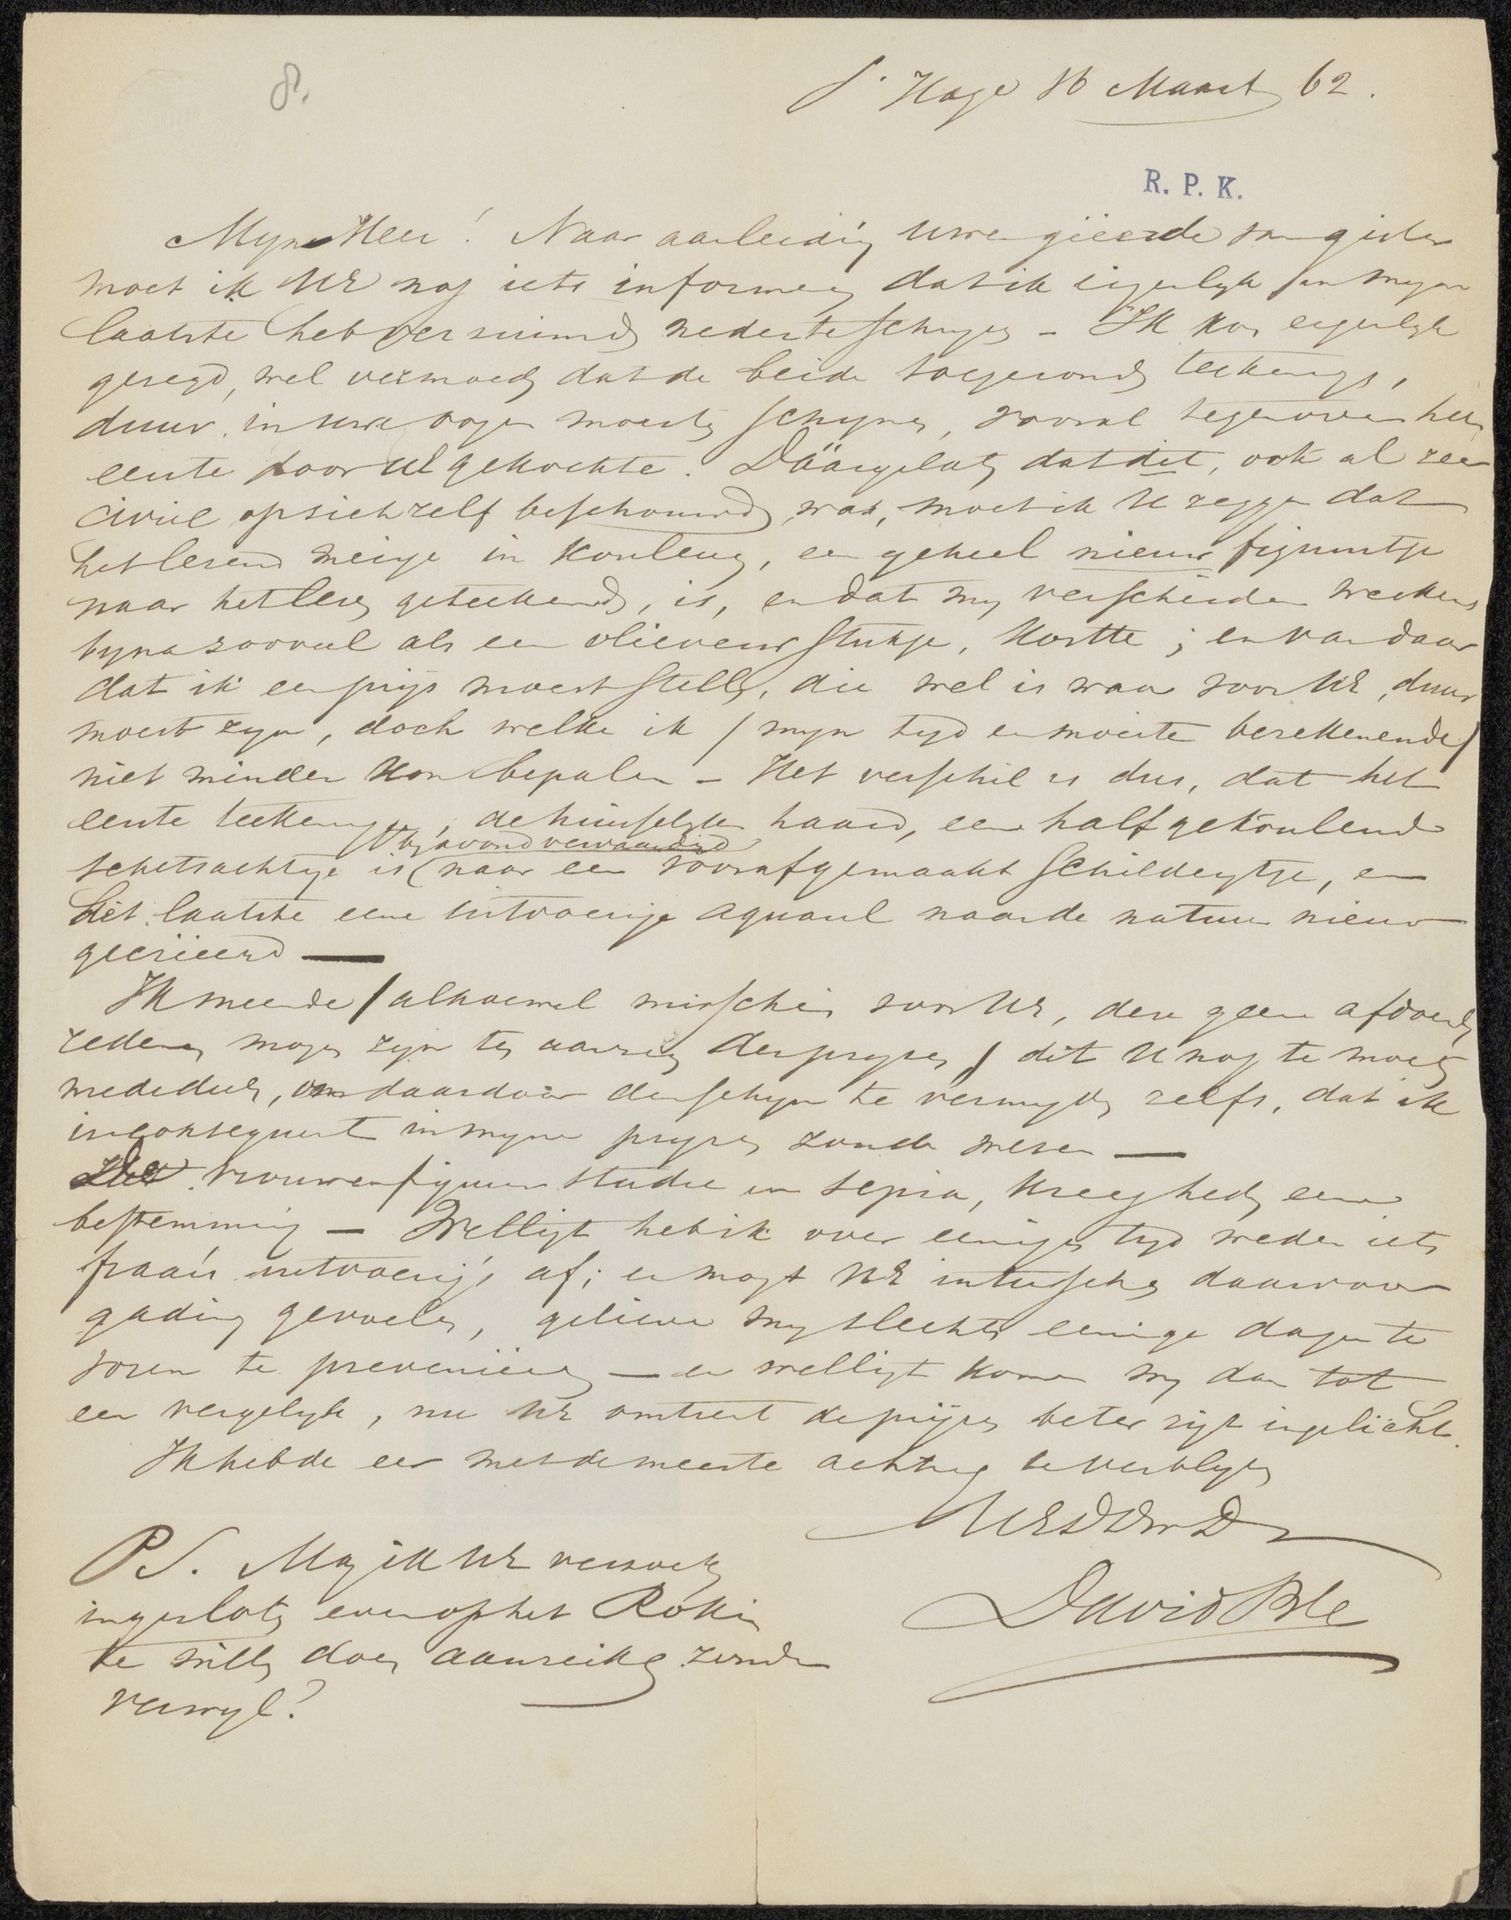 8.
s'Hage 16 Maart 62.
R. P. K.
Myn Heer! Naar aanleiding Uwe geëerde van gister
moet ik UE nog iets informeren dat ik eigenlyk in myn
laatste heb verzuimd neder te schryven – Ik kon eigenlyk
gezegd, wel vermoeden dat de beide toegezonden teekeningen,
duur in uwe oogen moesten schynen, vooral tegenover het
eerste door UE gekochte. Däärgelaten dat dit, ook al zeer
civiel op zich zelf beschouwd, was, moet ik U zeggen dat
het lezend meisje in Kouleur, een geheel nieuw figuurtje
naar het leven geteekend, is, en dat my verscheiden werken
byna zooveel als een olieverw stukje, kostte; en van daar
dat ik een prys moest stellen, die wel is waar voor UE, duur
moest zyn, doch welke ik / myn tyd en moeite berekenende /
niet minder kon bepalen – Het verschil is dus, dat het
eerste teekening, de huisselyke haard, een half gekouleurd
by avond vervaardigd
schetsachtige is (naar een vooraf gemaakt schilderytje, en
het laatste eene uitvoerige aquarel naar de natuur nieuw
gecrieerd —
Ik meende / alhoewel misschien voor UE, deze geene afdoende
redenen mogen zyn ten aanzien der pryzen / dit U nog te moeten
mededeelen, om daardoor den schyn te vermyden zelfs, dat ik
inconsequent in myne pryzen zoude wezen —
De vrouwenfiguur studie in sepia, kreeg heden eene
bestemming – Welligt heb ik over eenigen tyd weder iets
fraais uitvoerigs af; en mogt UE intusschen daarvoor
gading gevoelen, gelieve my slechts eenige dagen te
voren te prevenieeren – en welligt komen wy dan tot
een vergelyk, nu UE omtrent de pryzen beter zyt ingelicht.
Ik heb de eer met de meeste achting te verblyven
UEDDwD
David Bles
PS. Mag ik UE verzoeken
ingesloten even op het Rokin
te willen doen aanreiken zonder
verwyl?